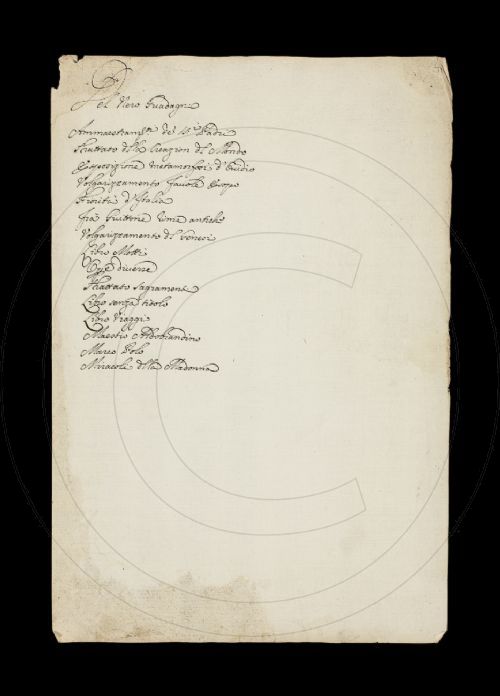 Del Piero Guadagni
Ammaestram.ti de SS. Padri
Trattato d.la Creazion d.l Mondo
Esposizione metamorfosi d'Ovidio
Volgarizzamento favole Esopo
Fiorità d'Italia
fra Guittone rime antiche
Volgarizzamento d.l
Libro Motti
Opē diverse
Trattato Sagramenti
Libro senza titolo
Libro Viaggi
Maestro Aldobrandino
Marco Polo
Miracoli della Madonna